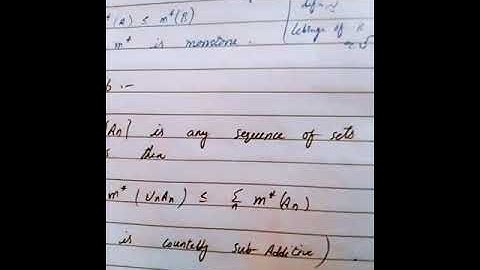 *(A) ≤ m*(B)
m* is monotone.
defn
Lebsnge of
b :-
{An} is any sequence of sets
then
m* (∪nAn) ≤ Σn m*(An)
is countably sub Additive)